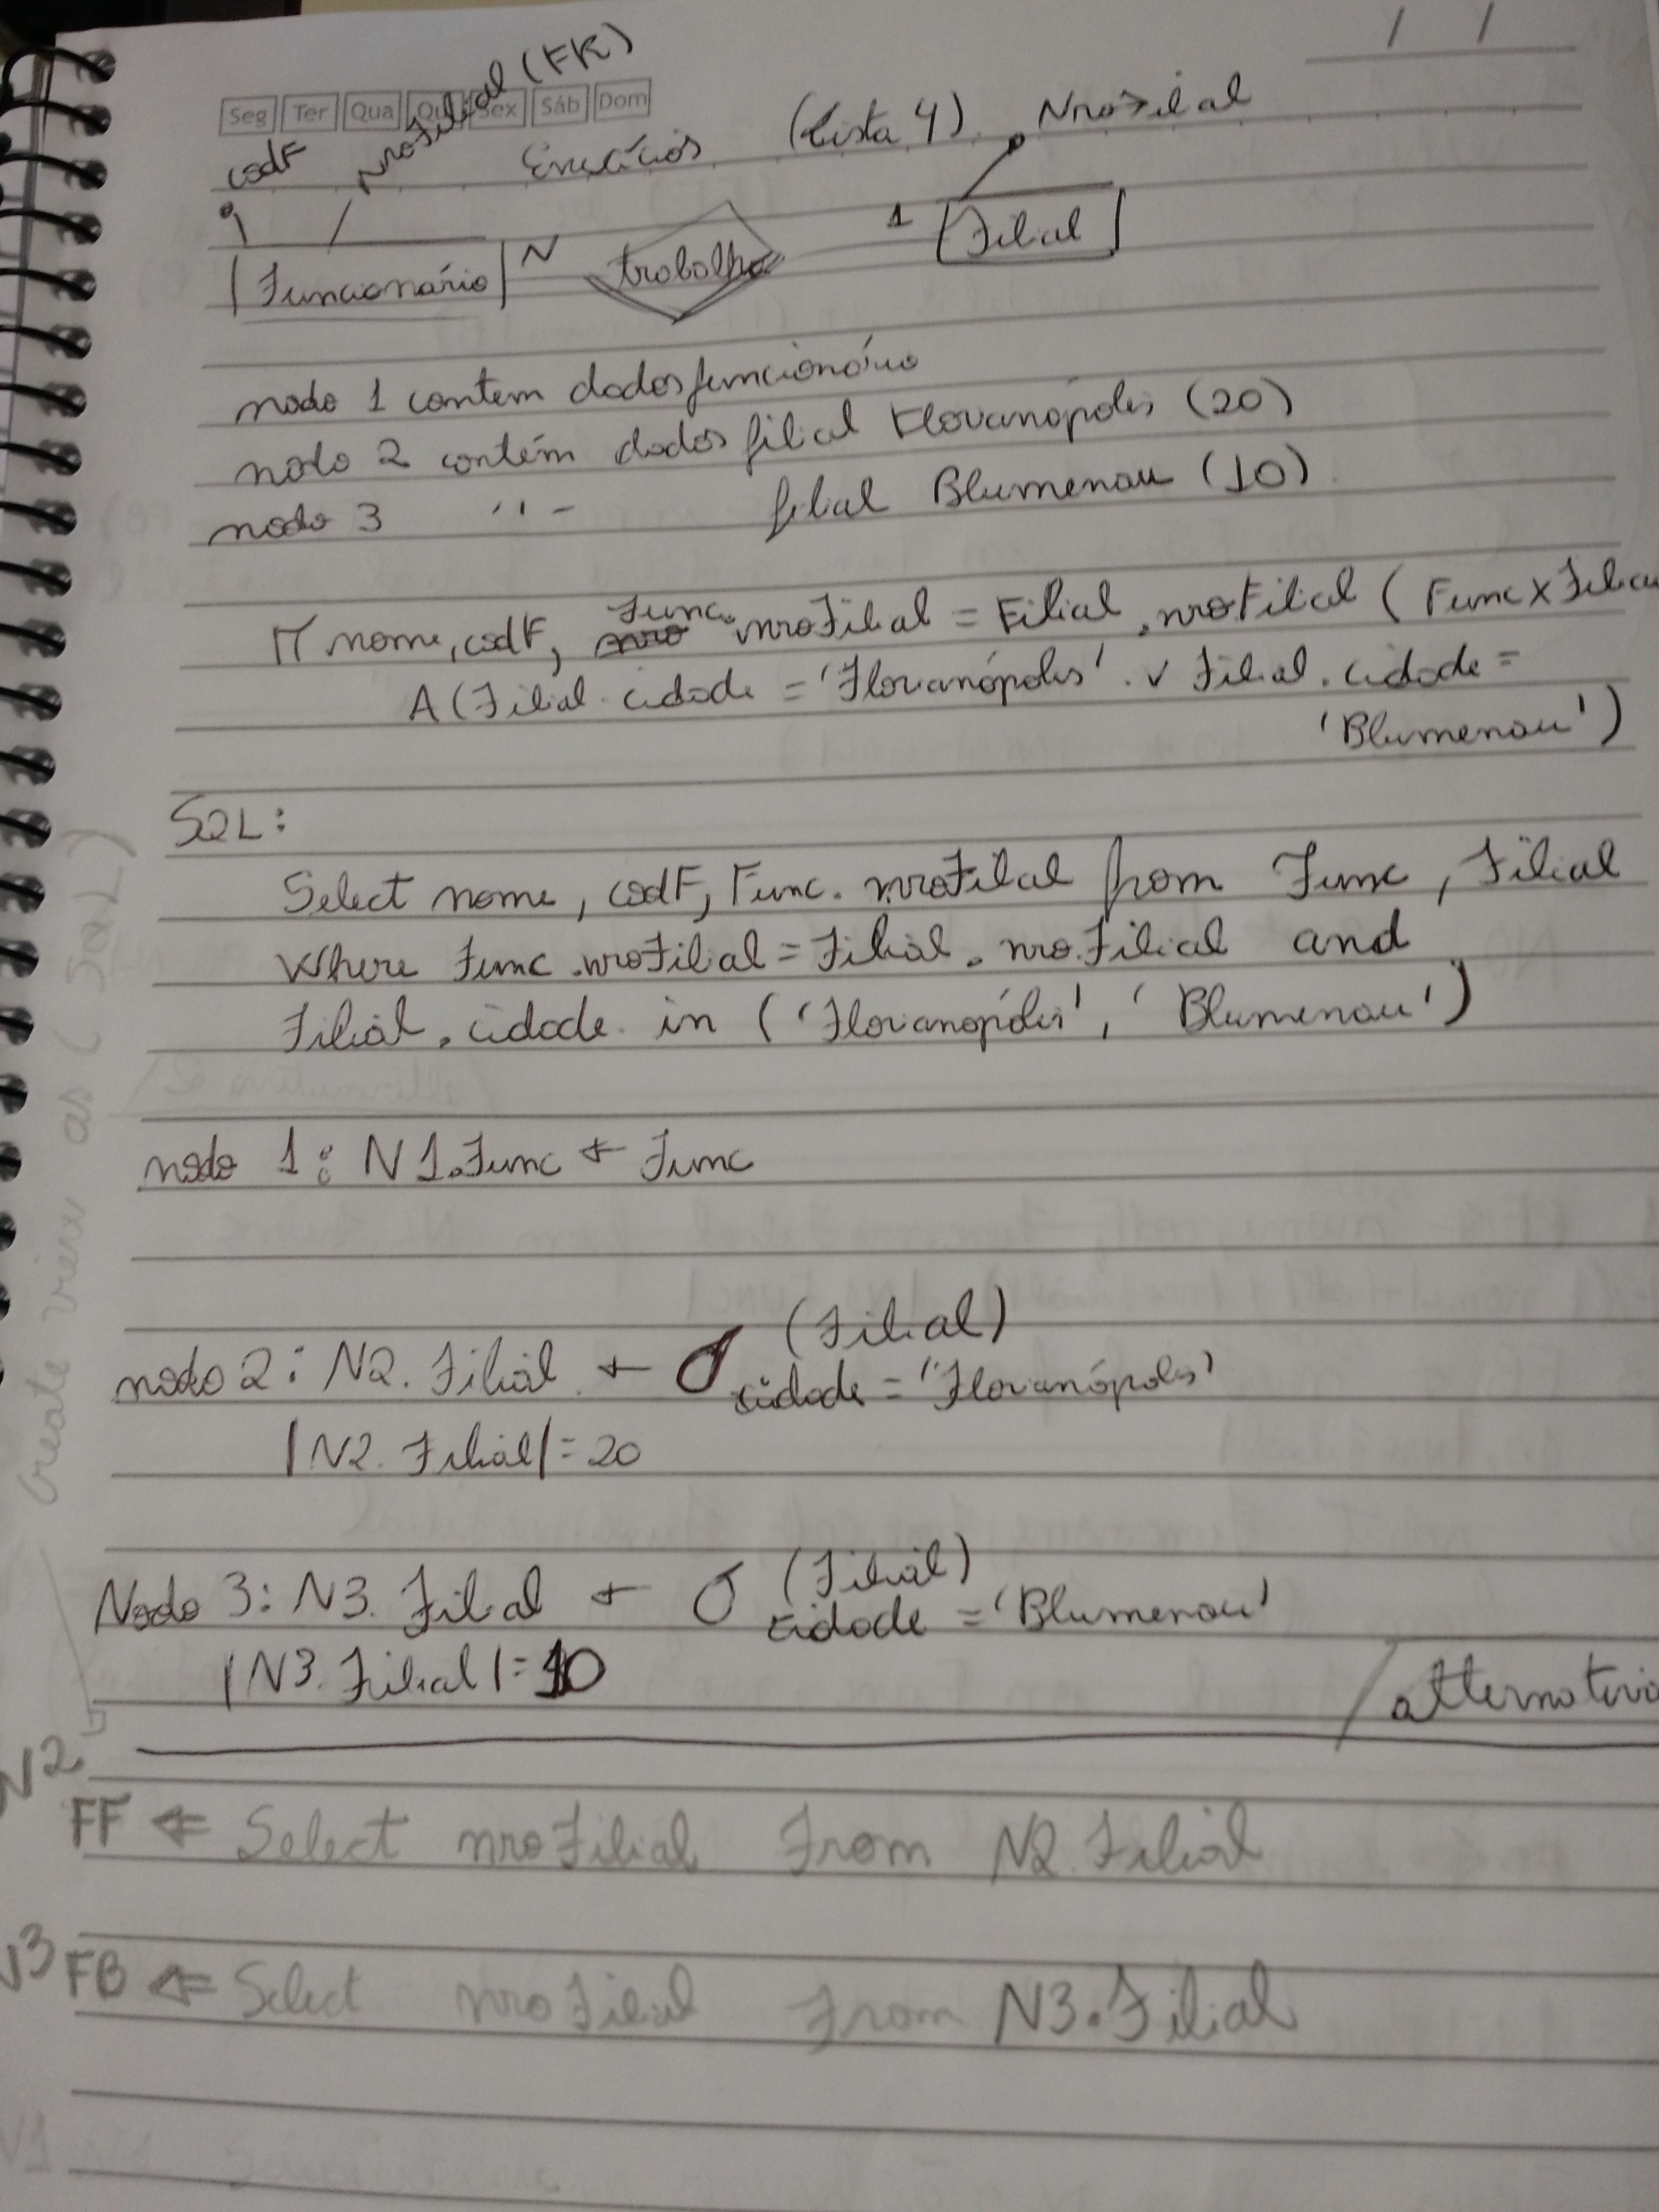 / /
Seg Ter Qua Qui Sex Sáb Dom
codF nroFilial (FK) Exercícios (Lista 4) NroFilial
Funcionário N trabalha 1 Filial
nodo 1 contem dados funcionário
nodo 2 contém dados filial Florianópolis (20)
nodo 3 '' - filial Blumenau (10)
π nome, codF, Func. nroFilial = Filial . nroFilial ( Func X
Λ (Filial . cidade = 'Florianópolis' . ∨ Filial . cidade =
'Blumenau')
SQL:
Select nome, codF, Func. nroFilial from Func, Filial
where Func.nroFilial = Filial . nro.Filial and
Filial . cidade in ('Florianopólis', 'Blumenau')
nodo 1: N1.Func ← Func
nodo 2: N2. Filial ← σ (Filial)
cidade = 'Florianópolis'
|N2. Filial| = 20
Nodo 3: N3. Filial ← σ (Filial)
cidade = 'Blumenau'
|N3. Filial| = 10
Create view as (SQL)
N2
FF ⇐ Select nroFilial From N2.Filial
N3 FB ⇐ Select nroFilial From N3.Filial
N1